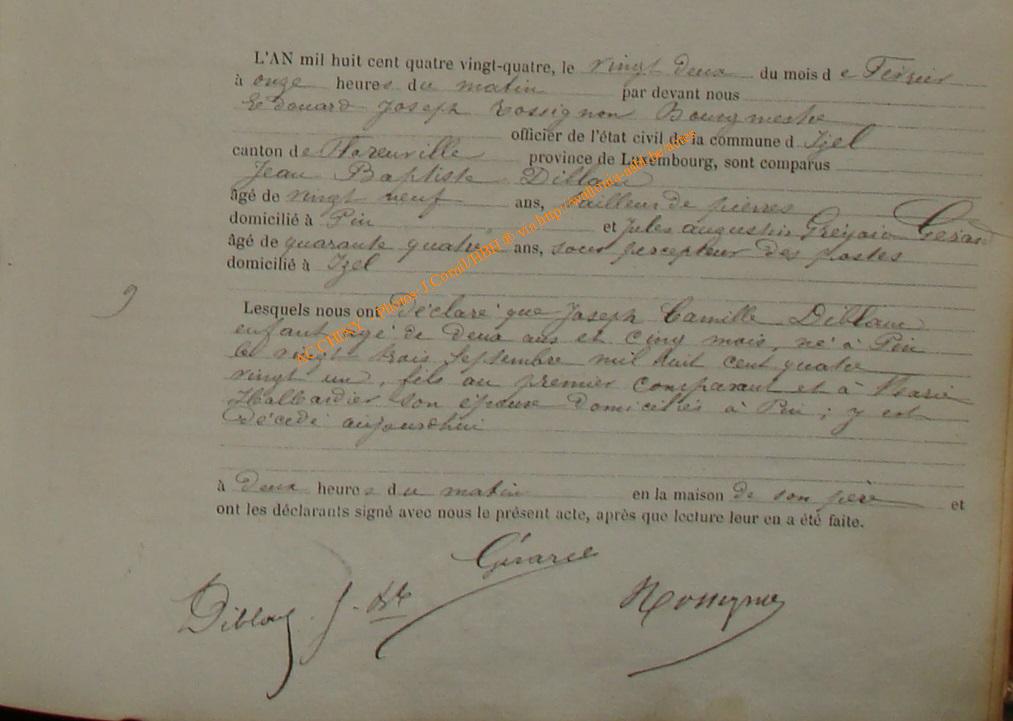 L'AN mil huit cent quatre vingt-quatre, le vingt deux du mois d e Fevrier
à onze heures du matin par devant nous
Edouard Joseph Rossignon Bourgmestre
officier de l'état civil de la commune d Izel
canton de Florenville province de Luxembourg, sont comparus
Jean Baptiste Diblau
âgé de vingt neuf ans, tailleur de pierres
domicilié à Pin et Jules augustin Grégoire Gerard
âgé de quarante quatre ans, sous percepteur des postes
domicilié à Izel
Lesquels nous ont déclaré que Joseph Camille Diblau
enfant agé de deux ans et cinq mois, né à Pin
le vingt trois Septembre mil huit cent quatre
vingt un, fils au premier comparant et à Marie
Hallbardier son épouse domiciliés à Pin ; y est
décédé aujourdhui
à deux heures du matin en la maison de son père et
ont les déclarants signé avec nous le présent acte, après que lecture leur en a été faite.
Gérard
J. Bte
Rossignon
9
Photos J. Conil/BBH ® via http://wallonia-asbl.be/ades